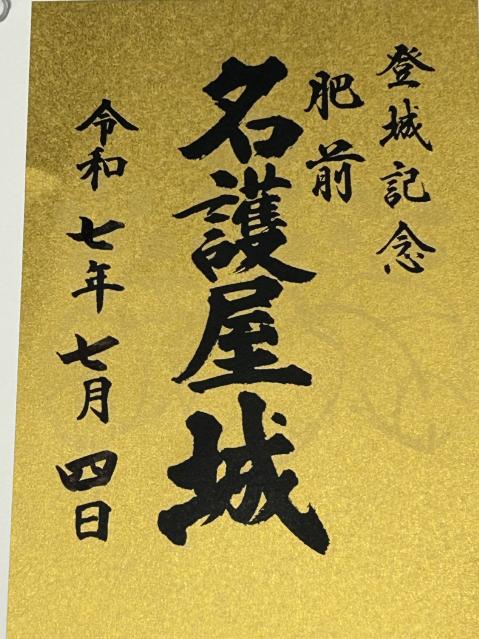 登城記念
肥前
名護屋城
令和七年七月四日